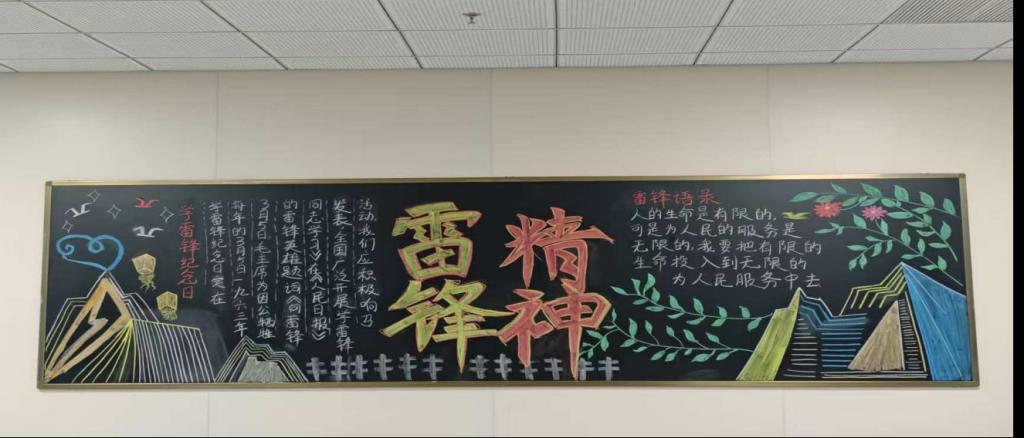 学雷锋纪念日
学雷锋纪念日定在
每年的3月5日一九六三年
3月5日毛主席为因公牺牲
的雷锋英雄题词《向雷锋
同志学习》在《人民日报》
发表全国广泛开展学雷锋
活动我们应积极响应
雷锋
精神
雷锋语录
人的生命是有限的,
可是为人民的服务是
无限的,我要把有限的
生命投入到无限的
为人民服务中去